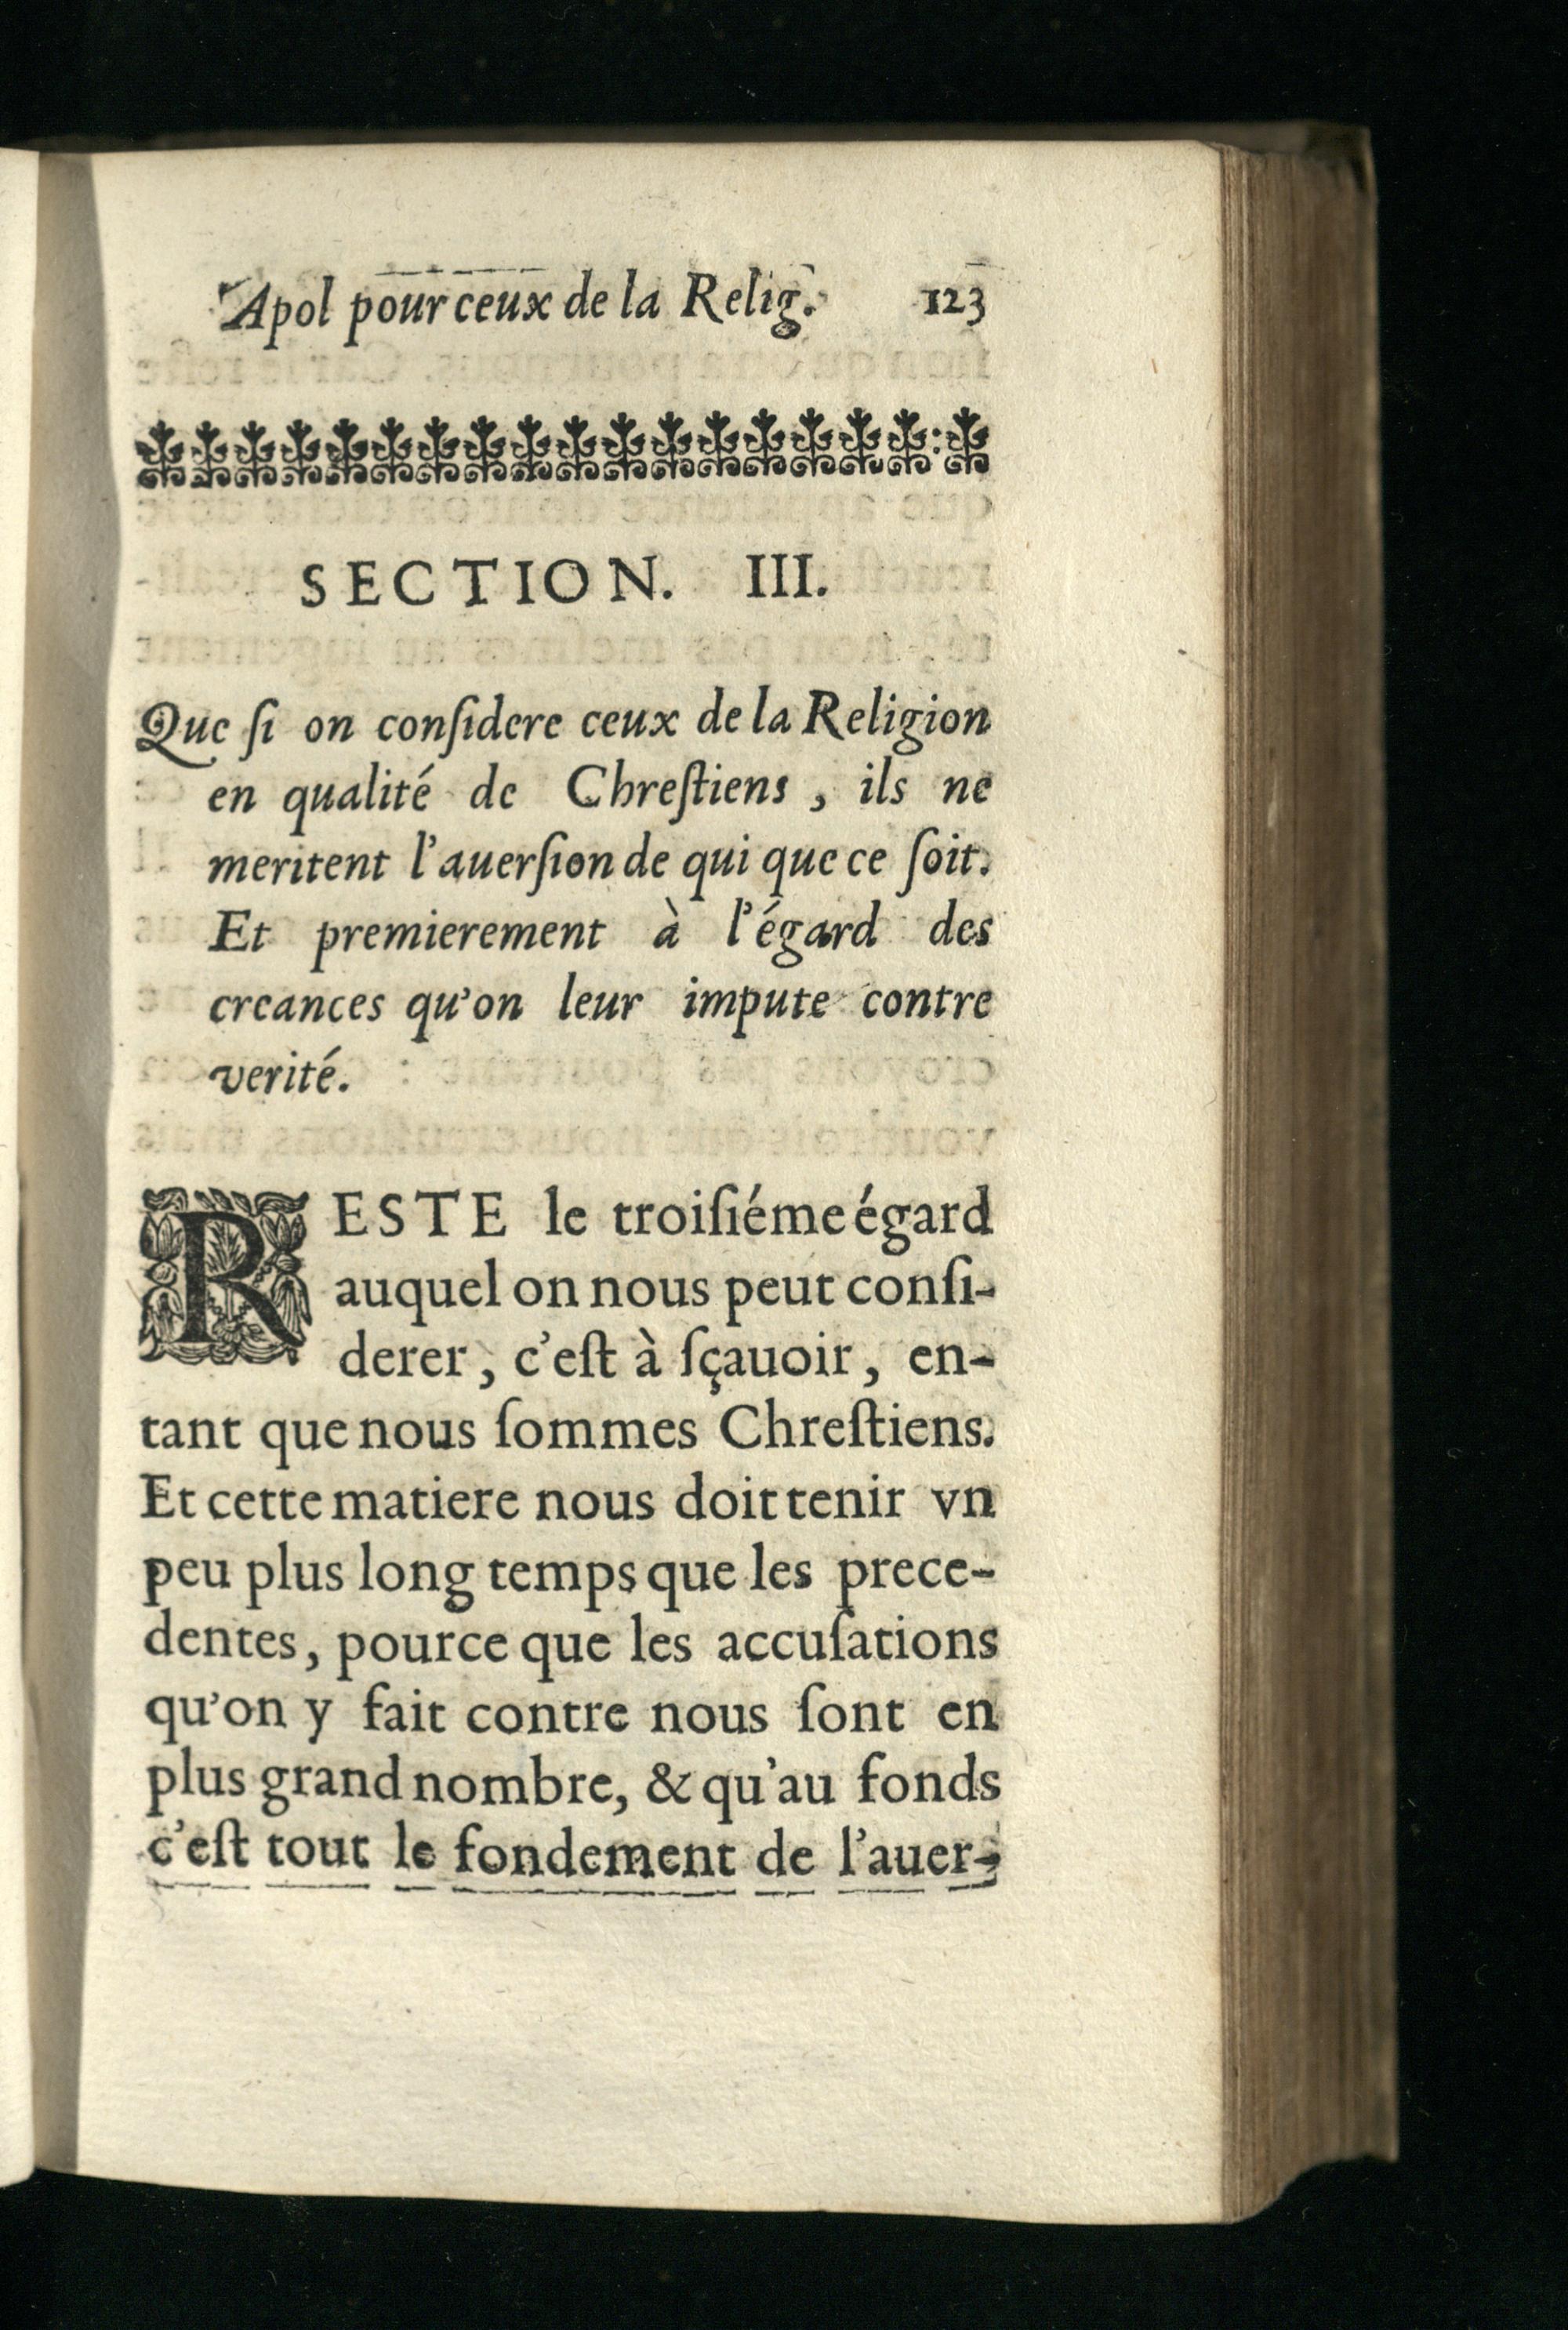 Apol pour ceux de la Relig. 123
SECTION. III.
Que ſi on conſidere ceux de la Religion
en qualité de Chreſtiens, ils ne
meritent l'auerſion de qui que ce ſoit.
Et premierement à l'égard des
creances qu'on leur impute contre
verité.
RESTE le troiſiéme égard
auquel on nous peut conſi-
derer, c'eſt à ſçauoir, en-
tant que nous ſommes Chreſtiens.
Et cette matiere nous doit tenir vn
peu plus long temps que les prece-
dentes, pource que les accuſations
qu'on y fait contre nous ſont en
plus grand nombre, & qu'au fonds
c'eſt tout le fondement de l'auer-